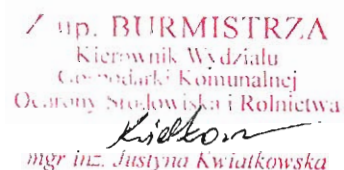 Z up. BURMISTRZA
Kierownik Wydziału
Gospodarki Komunalnej
Ochrony Środowiska i Rolnictwa
mgr inż. Justyna Kwiatkowska